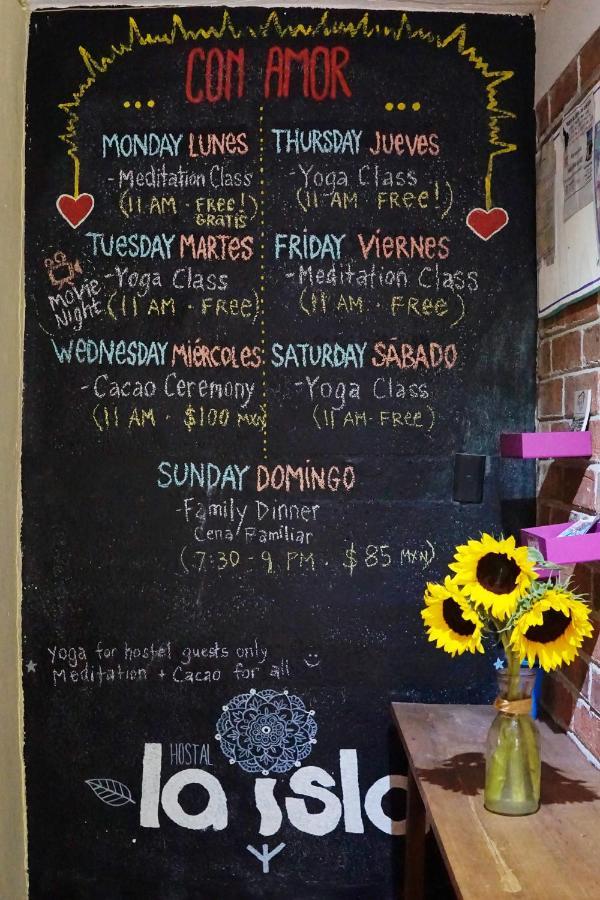 CON AMOR
MONDAY LUNES
-Meditation Class
(11 AM - FREE!)
GRATIS
TUESDAY MARTES
-Yoga Class
(11 AM · FREE)
Movie
Night
WEDNESDAY MIÉRCOLES
-Cacao Ceremony
(11 AM · $100 MXN)
THURSDAY JUEVES
-Yoga Class
(11 AM FREE!)
FRIDAY VIERNES
-Meditation Class
(11 AM · FREE)
SATURDAY SÁBADO
-Yoga Class
(11 AM-FREE)
SUNDAY DOMINGO
-Family Dinner
Cena Familiar
(7:30 - 9 PM · $85 MXN)
Yoga for hostel guests only
Meditation + Cacao for all
HOSTAL
la isla